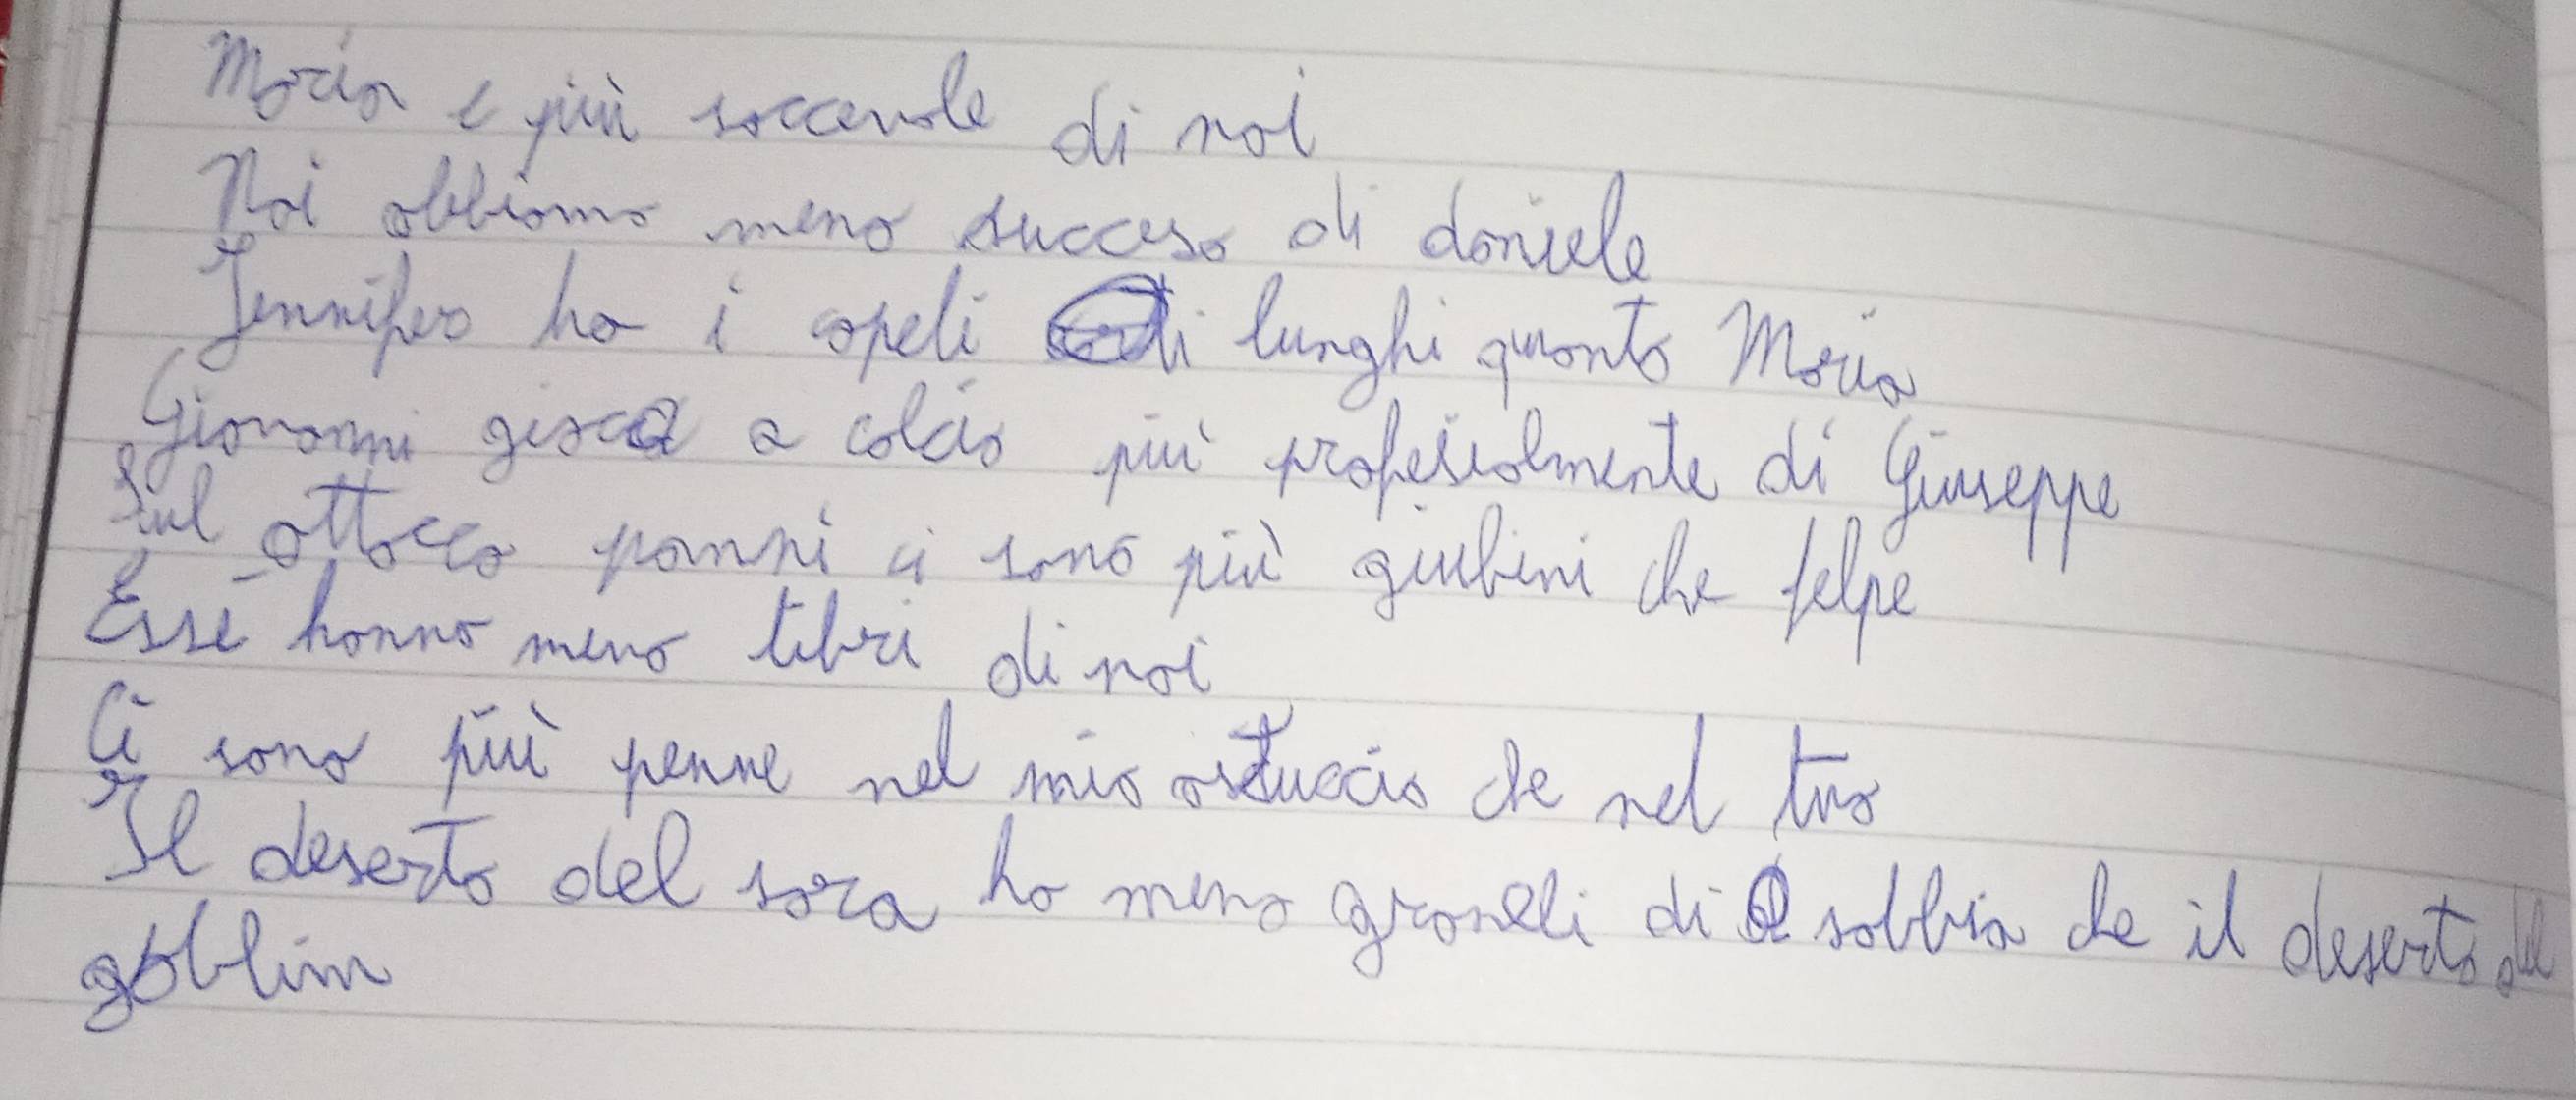 Maria e più soccevole di noi
Noi abbiamo meno succeso di daniele
Jennifer ha i capeli di lunghi quanto Maria
Giovanni gioca a calcio più profesialmente di Giuseppe
Sul attacca panni ci sono più giubini che felpe
Esse hanno meno libri di noi
Ci sono più penne nel mio astuccio che nel tuo
Il deserto del sara ha meno graneli di sabbia che il deserto del
goblin